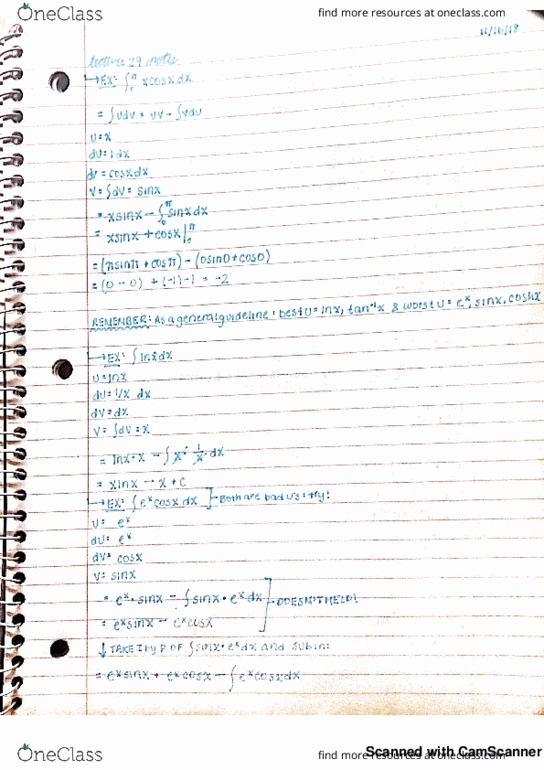 OneClass
find more resources at oneclass.com
11/16/18
lecture 29 notes
→EX: ∫₀^π xcosxdx
= ∫udv = uv - ∫vdu
u=x
du=1dx
dv=cosxdx
v=∫dv= sinx
= xsinx - ∫₀^π sinxdx
= xsinx + cosx|₀^π
=(πsinπ + cosπ) - (0sin0+cos0)
=(0-0) + (-1)-1 = -2
REMEMBER: As a general guideline: best u= lnx, tan⁻¹x & worst u= eˣ, sinx, cosx
→EX: ∫lnxdx
u=lnx
du=1/x dx
dv=dx
v=∫dv=x
= lnx·x - ∫x·1/x·dx
= xlnx - x+c
→EX: ∫eˣcosxdx ]-Both are bad u's: try!
u= eˣ
du= eˣ
dv= cosx
v= sinx
= eˣ·sinx - ∫sinx·eˣdx ]-DOESN'T HELP!
= eˣsinx - eˣcosx
↓ TAKE I by P OF ∫sinx·eˣdx and sub in:
= eˣsinx + eˣcosx - ∫eˣcosxdx
Scanned with CamScanner
OneClass
find more resources at oneclass.com